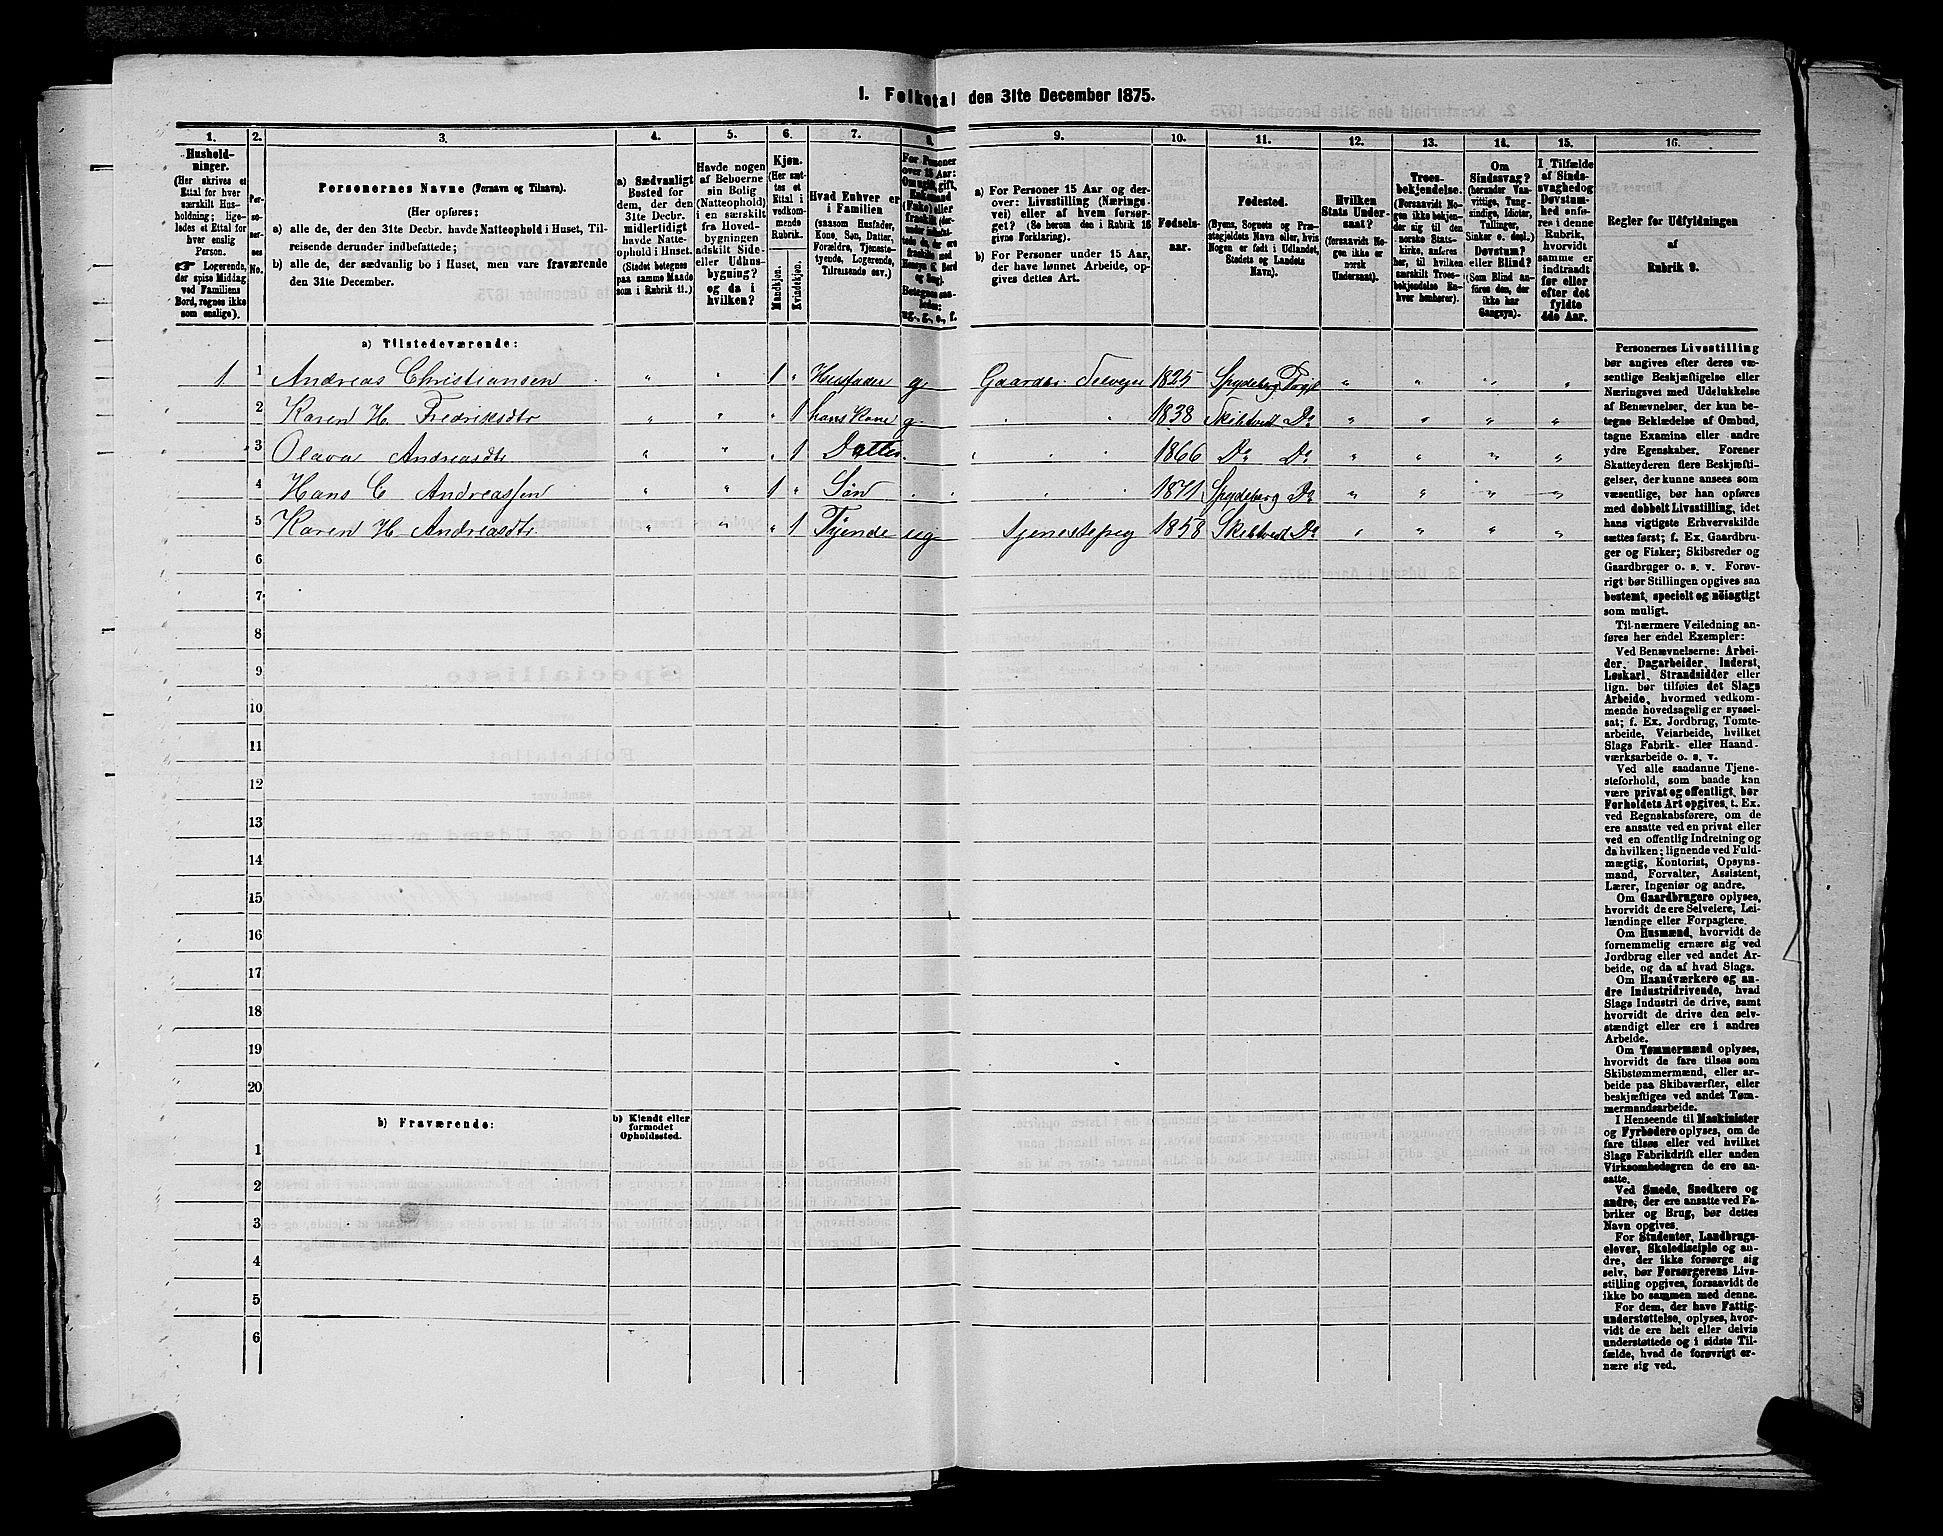 1. Folketal den 31te December 1875.
1. 2. 3. 4. 5. 6. 7. 8. 9. 10. 11. 12. 13. 14. 15. 16.
Husholdninger.
(Her skrives et
Ettal for hver
særskilt Husholdning;
ligeledes et Ettal for
hver enslig
Person.
Logerende,
der spise Middag
ved Familiens
Bord, regnes ikke
som enslige).
Personernes No.
Personernes Navne (Fornavn og Tilnavn).
(Her opføres:
a) alle de, der den 31te Decbr. havde Natteophold i Huset, Tilreisende derunder indbefattede;
b) alle de, der sædvanlig bo i Huset, men vare fraværende
den 31te December.
a) Sædvanligt
Bosted for
dem, der den
31te Decbr.
midlertidigt
havde Natteophold i Huset.
(Stedet betegnes
paa samme Maade
som i Rubrik 11.)
Havde nogen
af Beboerne
sin Bolig
(Natteophold)
i en særskilt
fra Hovedbygningen
adskilt Sideeller Udhusbygning?
og da i
hvilken?
Kjøn.
(Her sættes et
Ettal i
vedkommende
Rubrik.
Mandkjøn.
Kvindekjøn.
Hvad Enhver er
i Familien
(saasom Husfader,
Kone, Søn, Datter,
Forældre, Tjenestetyende, Logerende,
Tilreisende osv.)
For Personer
over 15 Aar:
ug., g., e., f.
a) For Personer 15 Aar og derover: Livsstilling (Næringsvei) eller af hvem forsørget? (Se herom den i Rubrik 16
givne Forklaring).
b) For Personer under 15 Aar,
der have lønnet Arbeide, opgives dettes Art.
Fødselsaar.
Fødested.
(Byens, Sognets og Præstegjeldets Navn eller, hvis
Nogen er født i Udlandet,
Stedets og Landets
Navn).
Hvilken
Stats Undersaat?
(forsaavidt Nogen ikke er
norsk
Undersaat).
Troesbekjendelse.
(Forsaavidt Nogen ikke bekjender sig til den
norske Statskirke, anføres
her, til hvilken
særskilt Troesbekjendelse Enhver henhører).
Om
Sindssvag?
(herunder Vanvittige, Tungsindige, Idioter,
Tullinger,
Sinker o. desl.)
Døvstum?
eller Blind?
(Som Blind anføres den, der
ikke har
Gangsyn).
I Tilfælde
af Sindssvaghed og
Døvstumhed anføres i denne
Rubrik,
hvorvidt
samme er
indtraadt
før eller
efter det
fyldte
4de Aar.
Regler for Udfyldningen
af
Rubrik 9.
a) Tilstedeværende:
1 1 Andreas Christiansen " " 1 " Husfader g Gaardbr. Selveier 1825 Spydeberg Prgj. " " " "
2 Karen H. Fredriksdtr " " " 1 hans Kone g. " " 1838 Skibtvedt Do " " " "
3 Olava Andreasdtr " " " 1 Datter " " 1866 Do Do " " " "
4 Hans C. Andreassen " " 1 " Søn " " 1871 Spydeberg Do " " " "
5 Karen H. Andreasdtr. " " " 1 Tyende ug Tjenestepig 1858 Skibtvedt Do " " " "
6
7
8
9
10
11
12
13
14
15
16
17
18
19
20
b) Fraværende:
b) Kjendt eller
formodet
Opholdssted.
1
2
3
4
5
6
Personernes Livsstilling
bør angives efter deres væsentlige Beskjæftigelse eller
Næringsvei med Udelukkelse
af Benævnelser, der kun betegne Beklædelse af Ombud,
tagne Examina eller andre
ydre Egenskaber. Forener
Skatteyderen flere Beskjæftigelser, der kunne ansees som
væsentlige, bør han opføres
med dobbelt Livsstilling, idet
hans vigtigste Erhvervskilde
sættes først; f. Ex. Gaardbruger og Fisker; Skibsreder og
Gaardbruger o. s. v. Forøvrigt bør Stillingen opgives saa
bestemt, specielt og nöiagtigt
som muligt.
Til nærmere Veiledning anføres her endel Exempler:
Ved Benævnelserne: Arbeider, Dagarbeider, Inderst,
Løskarl, Strandsidder eller
lign. bør tilføies det Slags
Arbeide, hvormed vedkommende hovedsagelig er sysselsat; f. Ex. Jordbrug, Tomtearbeide, Veiarbeide, hvilket
Slags Fabrik- eller Haandværksarbeide o. s. v.
Ved alle saadanne Tjenesteforhold, som baade kan
være privat og offentligt, bør
Forholdets Art opgives, t. Ex.
ved Regnskabsførere, om de
ere ansatte ved en privat eller
ved en offentlig Indretning og
da hvilken; lignende ved Fuldmægtig, Kontorist, Opsynsmand, Forvalter, Assistent,
Lærer, Ingeniør og andre.
Om Gaardbrugere oplyses,
hvorvidt de ere Selveiere, Leilændinge eller Forpagtere.
Om Husmænd, hvorvidt de
fornemmelig ernære sig ved
Jordbrug eller ved andet Arbeide, og da af hvad Slags.
Om Haandværkere og andre Industridrivende, hvad
Slags Industri de drive, samt
hvorvidt de drive den selvstændigt eller ere i andres
Arbeide.
Om Tømmermænd oplyses,
hvorvidt de fare tilsøs som
Skibstømmermænd, eller arbeide paa Skibsværfter, eller
beskjæftiges ved andet Tømmermandsarbeide.
I Henseende til Maskinister
og Fyrbødere oplyses, om de
fare tilsøs eller ved hvilket
Slags Fabrikdrift eller anden
Virksomhedsgren de ere ansatte.
Ved Smede, Snedkere og
andre, der ere ansatte ved Fabriker og Brug, bør dettes
Navn opgives.
For Studenter, Landbrugselever, Skoledisciple og andre, der ikke forsørge sig
selv, bør Forsørgerens Livsstilling opgives, forsaavidt de
ikke bo sammen med denne.
For dem, der have Fattigunderstøttelse, oplyses, hvorvidt de ere helt eller delvis
understøttede og i sidste Tilfælde, hvad de forøvrigt ernære sig ved.